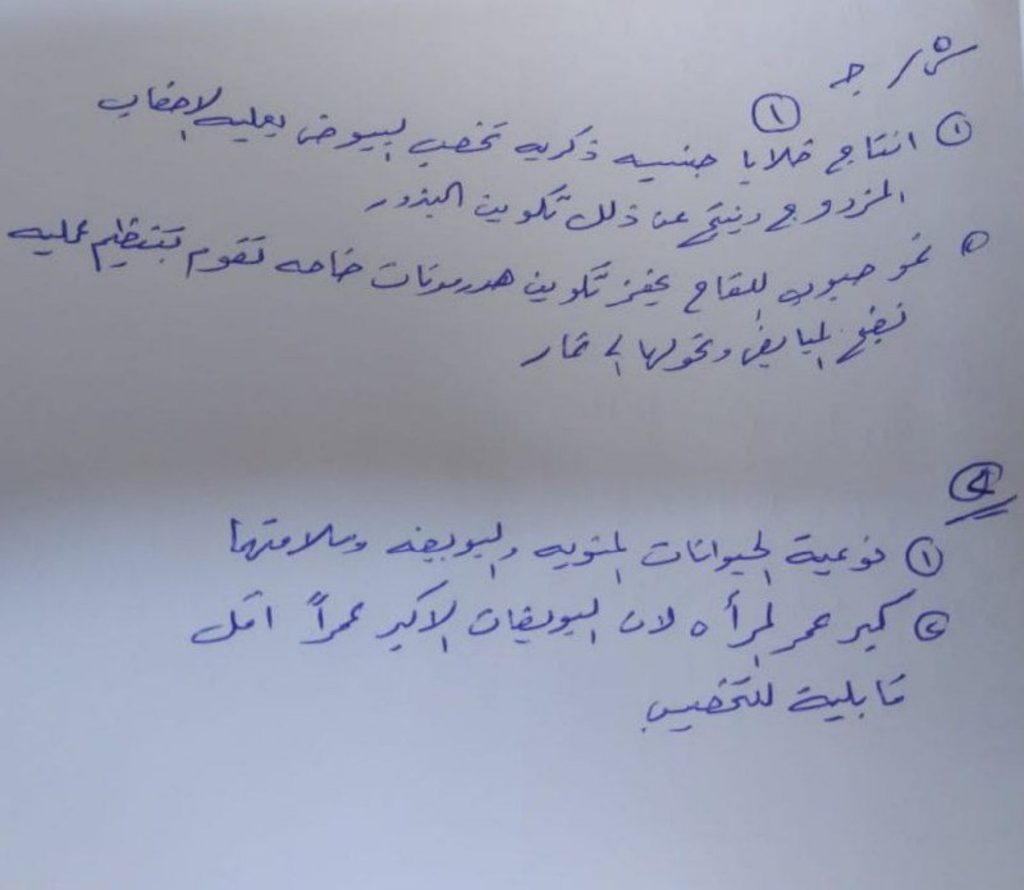 س٥ / جـ
①
① انتاج خلايا جنسيه ذكريه تخصب البيوض بعمليه الاخصاب
المزدوج وينتج عن ذلك تكوين البذور
② نمو حبوب اللقاح يحفز تكوين هورمونات خاصه تقوم بتنظيم عمليه
نضج المبايض وتحولها الى ثمار
②
① نوعية الحيوانات المنويه والبويضه وسلامتها
② كبر عمر المرأه لان البويضات الاكبر عمراً اقل
قابلية للتخصيب